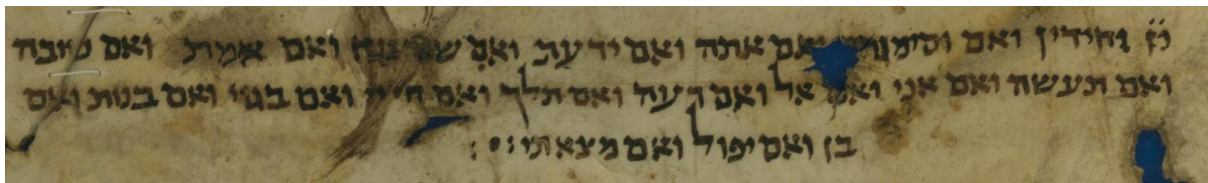 יחידין ואם ואם אתה ואם ידעת ואם ואם אמת ואם טובה
ואם תעשה ואם אני ואם אל ואם רעה ואם תלך ואם היה ואם ואם בנות ואם
בן ואם יפול ואם מצאתי